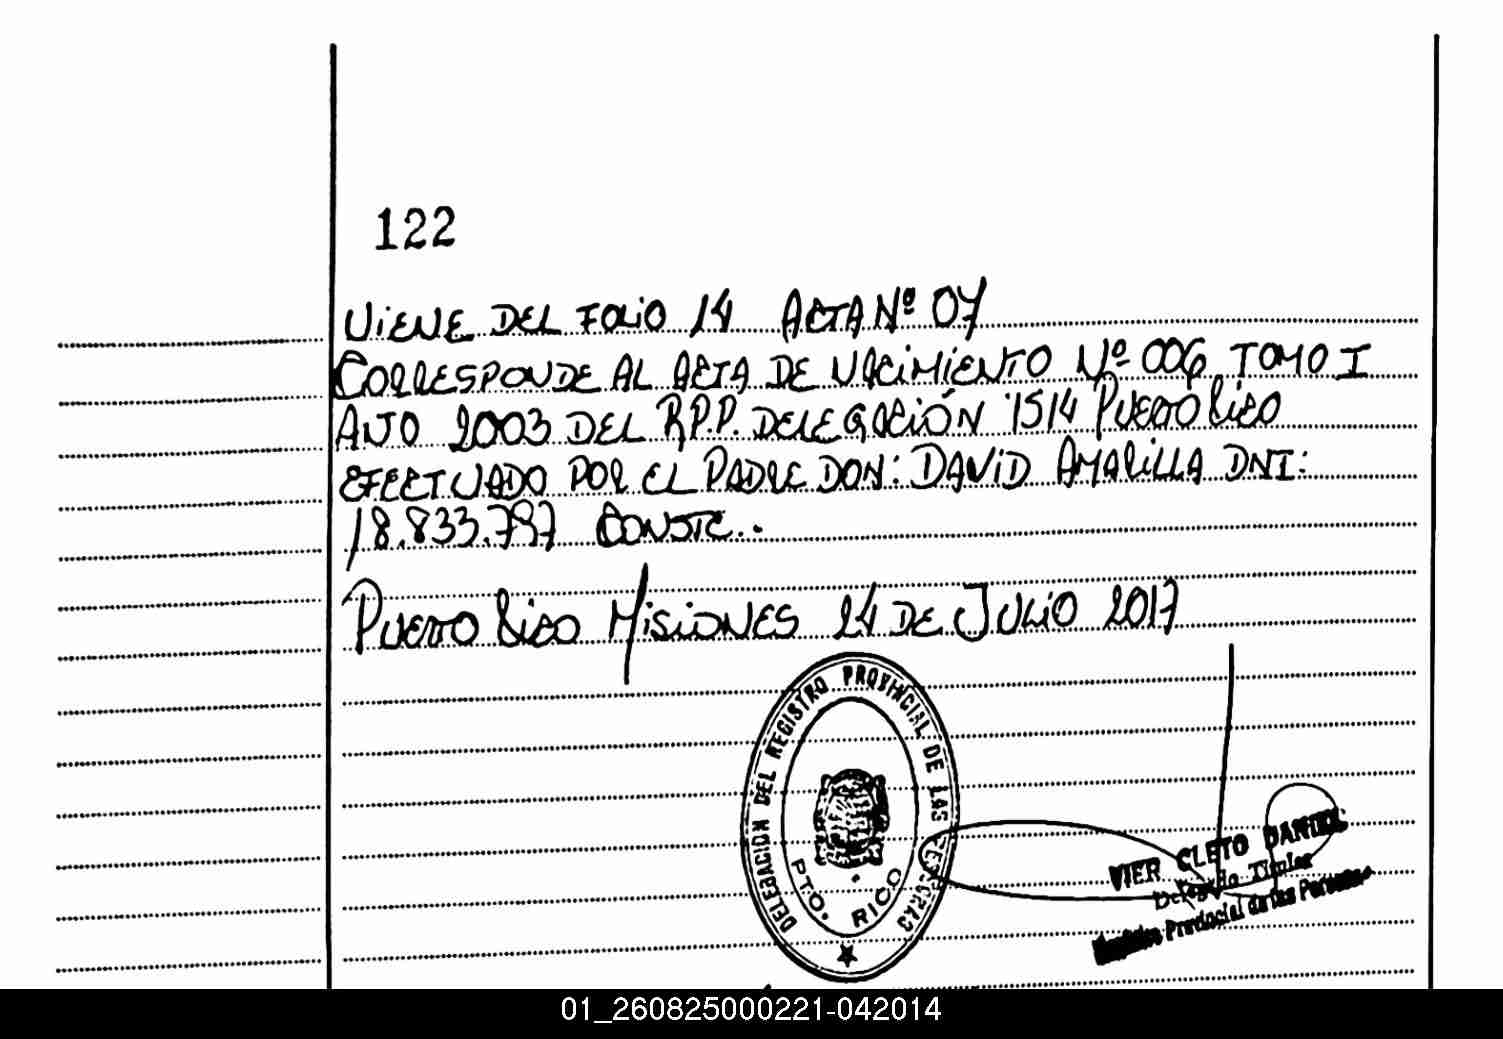 122
VIENE DEL FOLIO 14 ACTA Nº 07
CORRESPONDE AL ACTA DE NACIMIENTO Nº 006 TOMO I
AÑO 2003 DEL R.P.P. DELEGACIÓN 1514 PUERTO RICO
EFECTUADO POR EL PADRE DON: DAVID AMARILLA DNI:
18.833.797 CONSTE..
PUERTO RICO MISIONES 24 DE JULIO 2017
DELEGACION DEL REGISTRO PROVINCIAL DE LAS PERSONAS
PTO. RICO
VIER CLETO DANIEL
Delegado Titular
Registro Provincial de las Personas
01_260825000221-042014